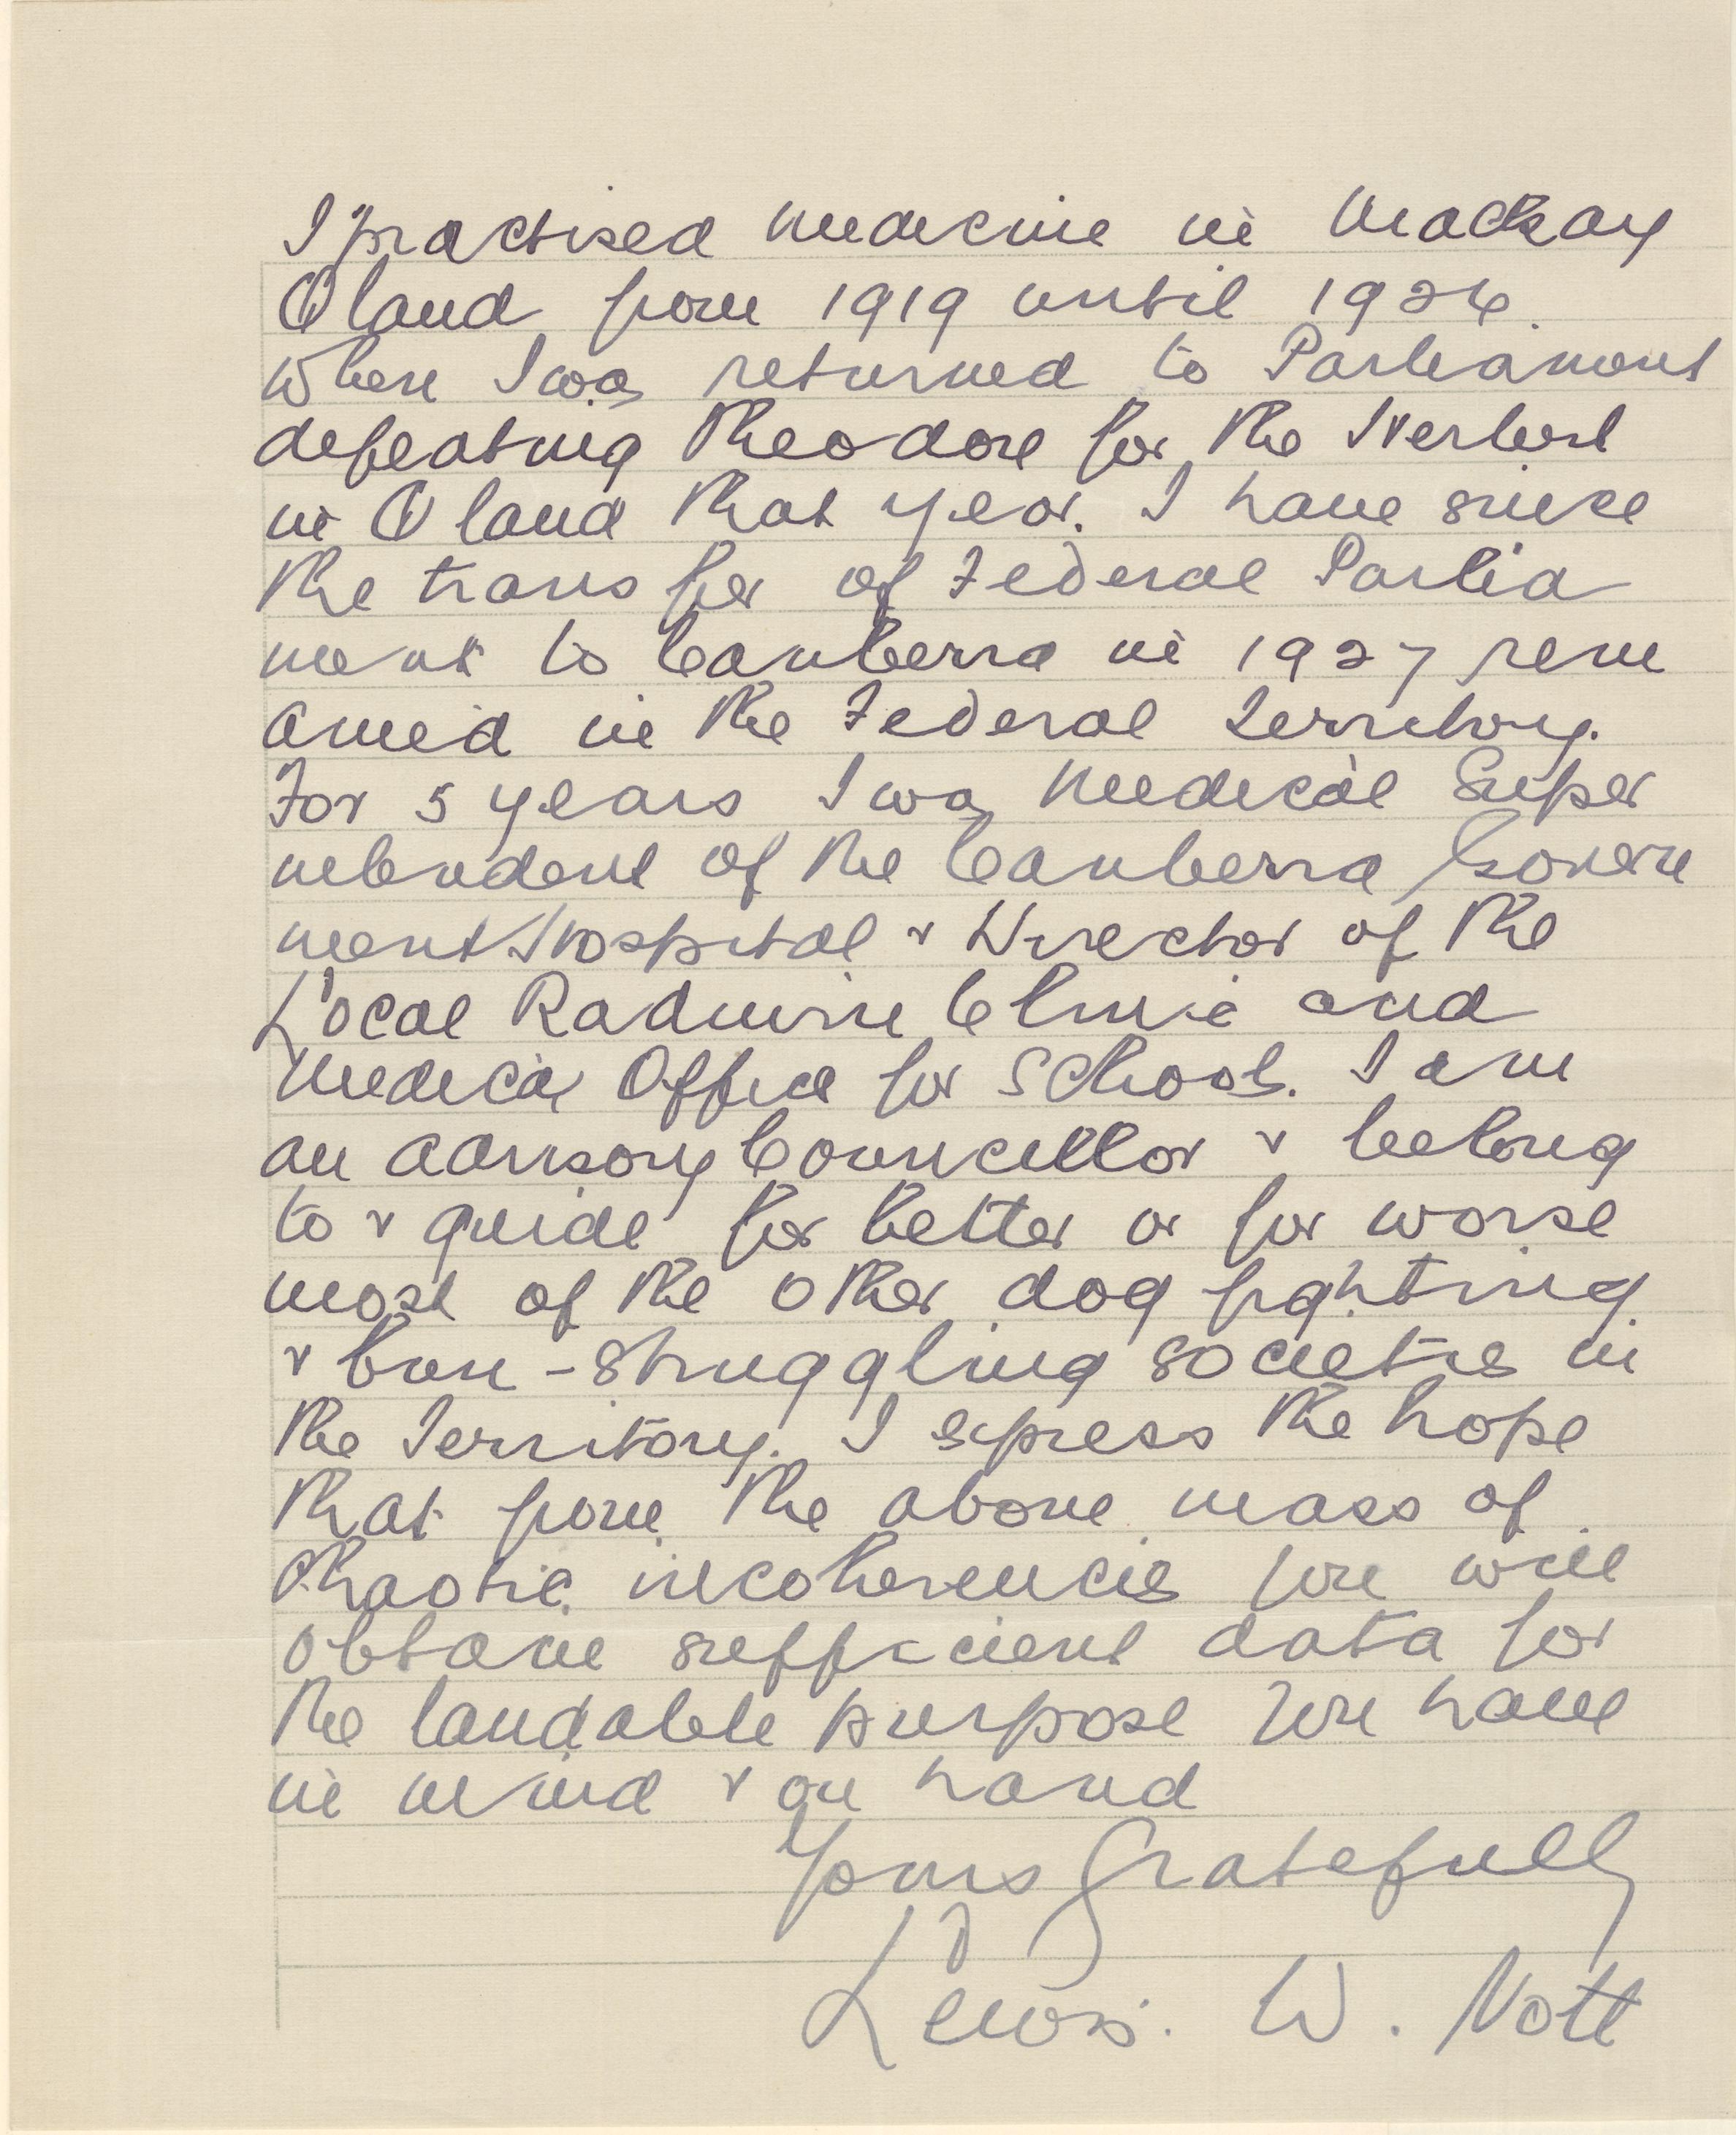 I practised medicine in Mackay
Qland from 1919 until 1926.
When I was returned to Parliament
defeating Theodore for the Herbert
in Qland that year. I have since
the transfer of Federal Parlia
ment to Canberra in 1927 rem
ained in the Federal Territory.
For 5 years I was Medical Super
intendent of the Canberra Govern
ment Hospital & Director of the
Local Radium Clinic and
Medical Officer for Schools. I am
an advisory Councillor & belong
to & guide for better or for worse
most of the other dog fighting
& bun-struggling societies in
the Territory. I express the hope
that from the above mass of
Chaotic incoherencies you will
obtain sufficient data for
the laudable purpose you have
in mind & on hand
Yours Gratefully
Lewis. W. Nott